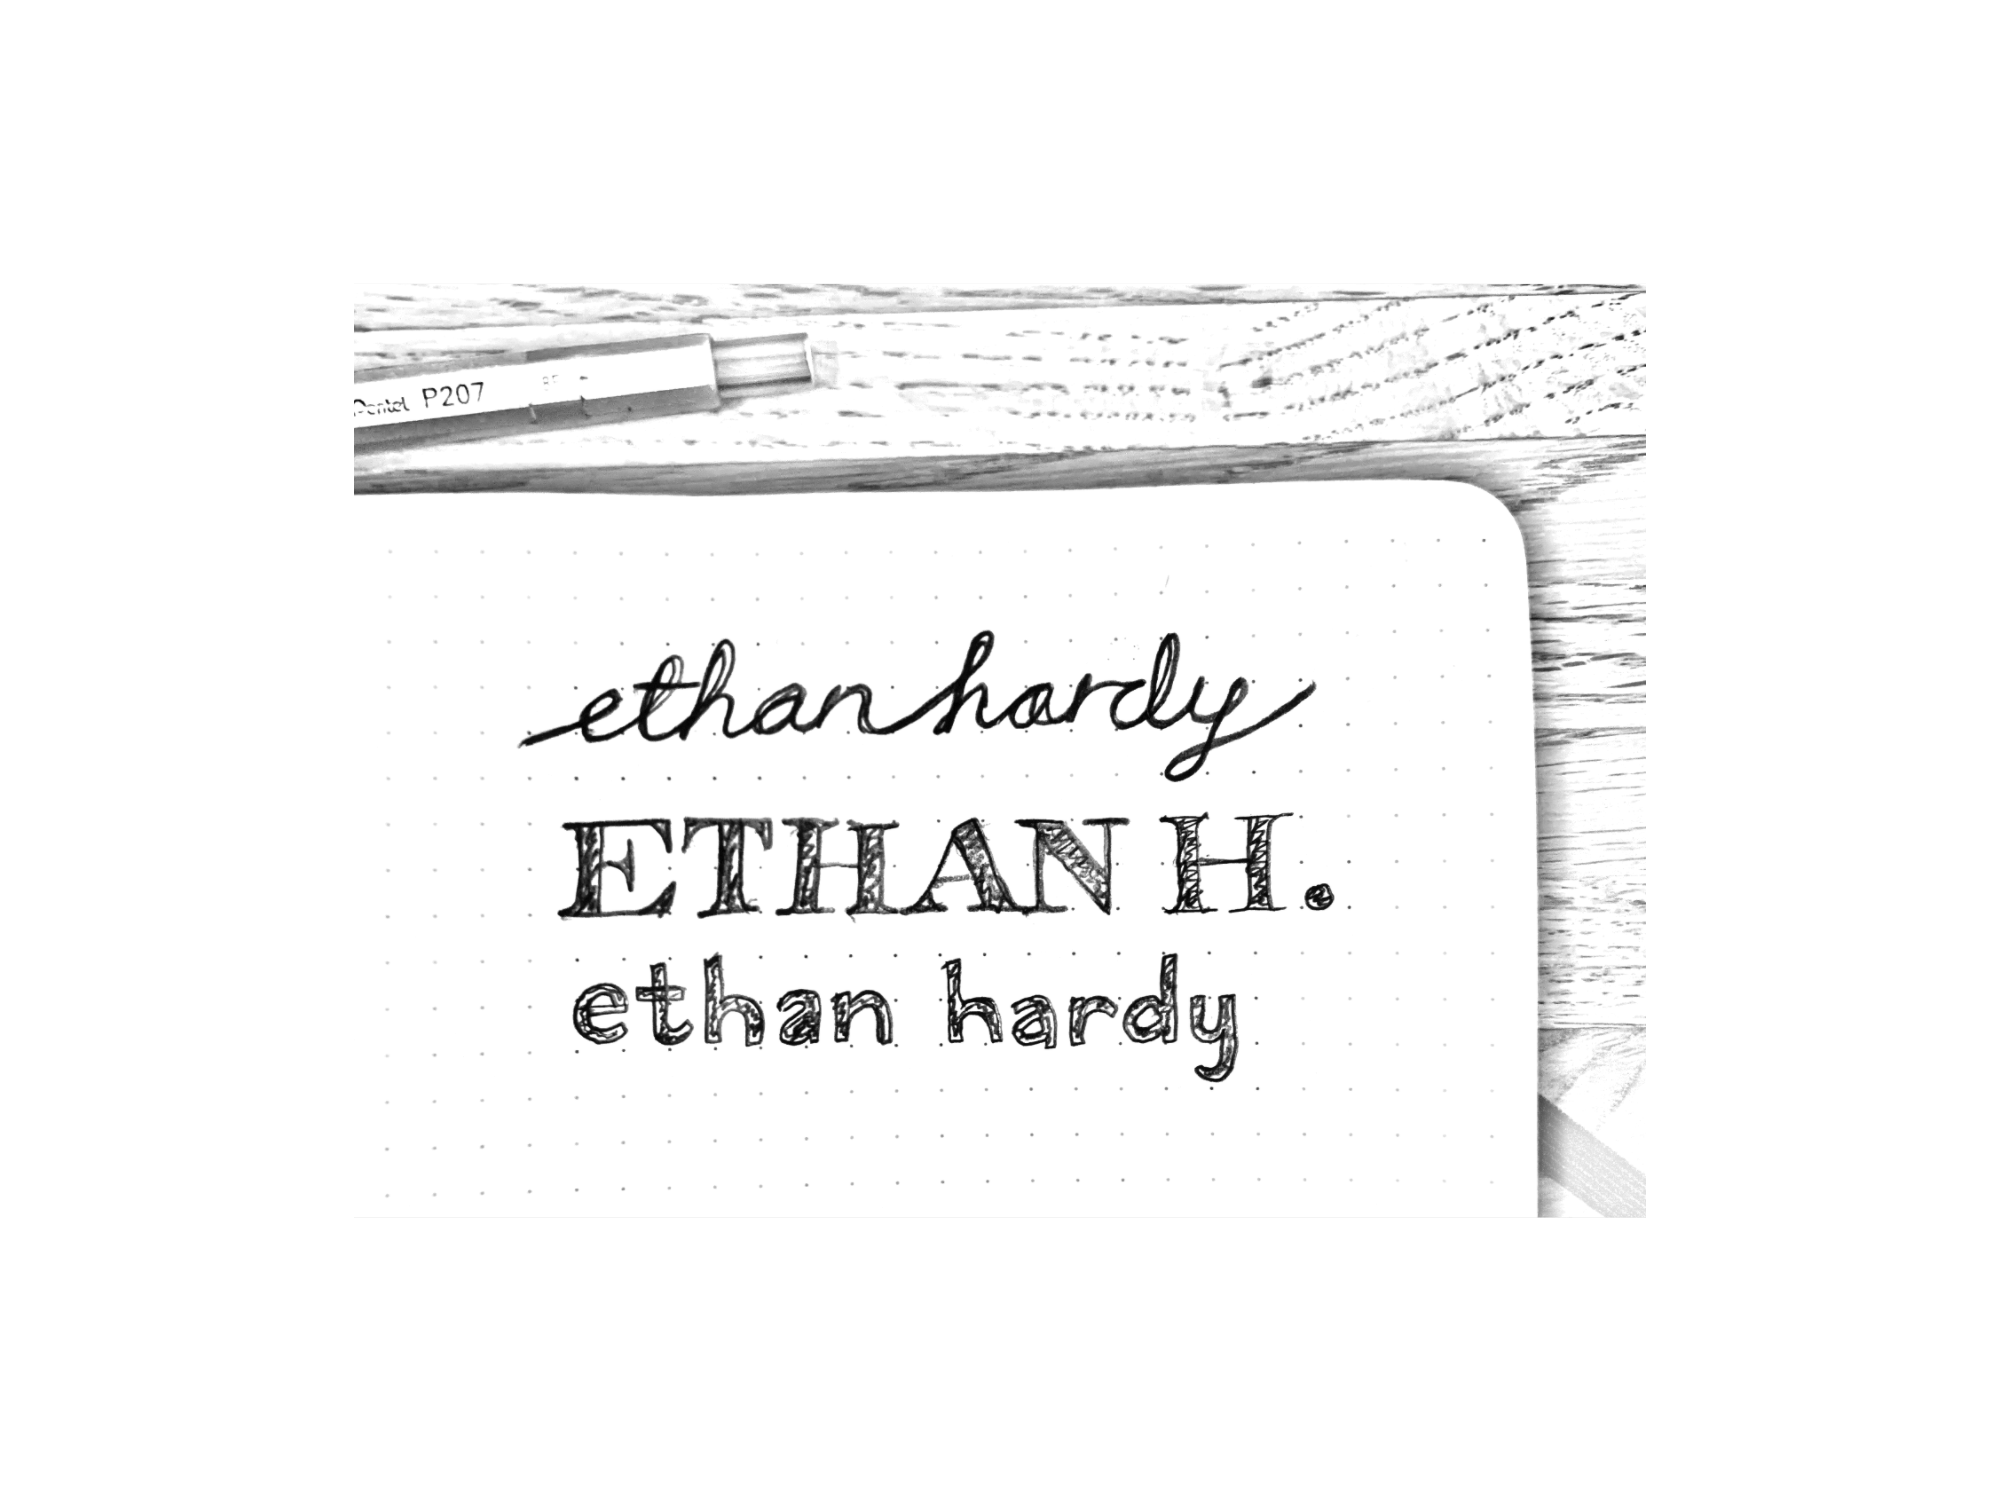 Pentel P207
ethan hardy
ETHAN H.
ethan hardy